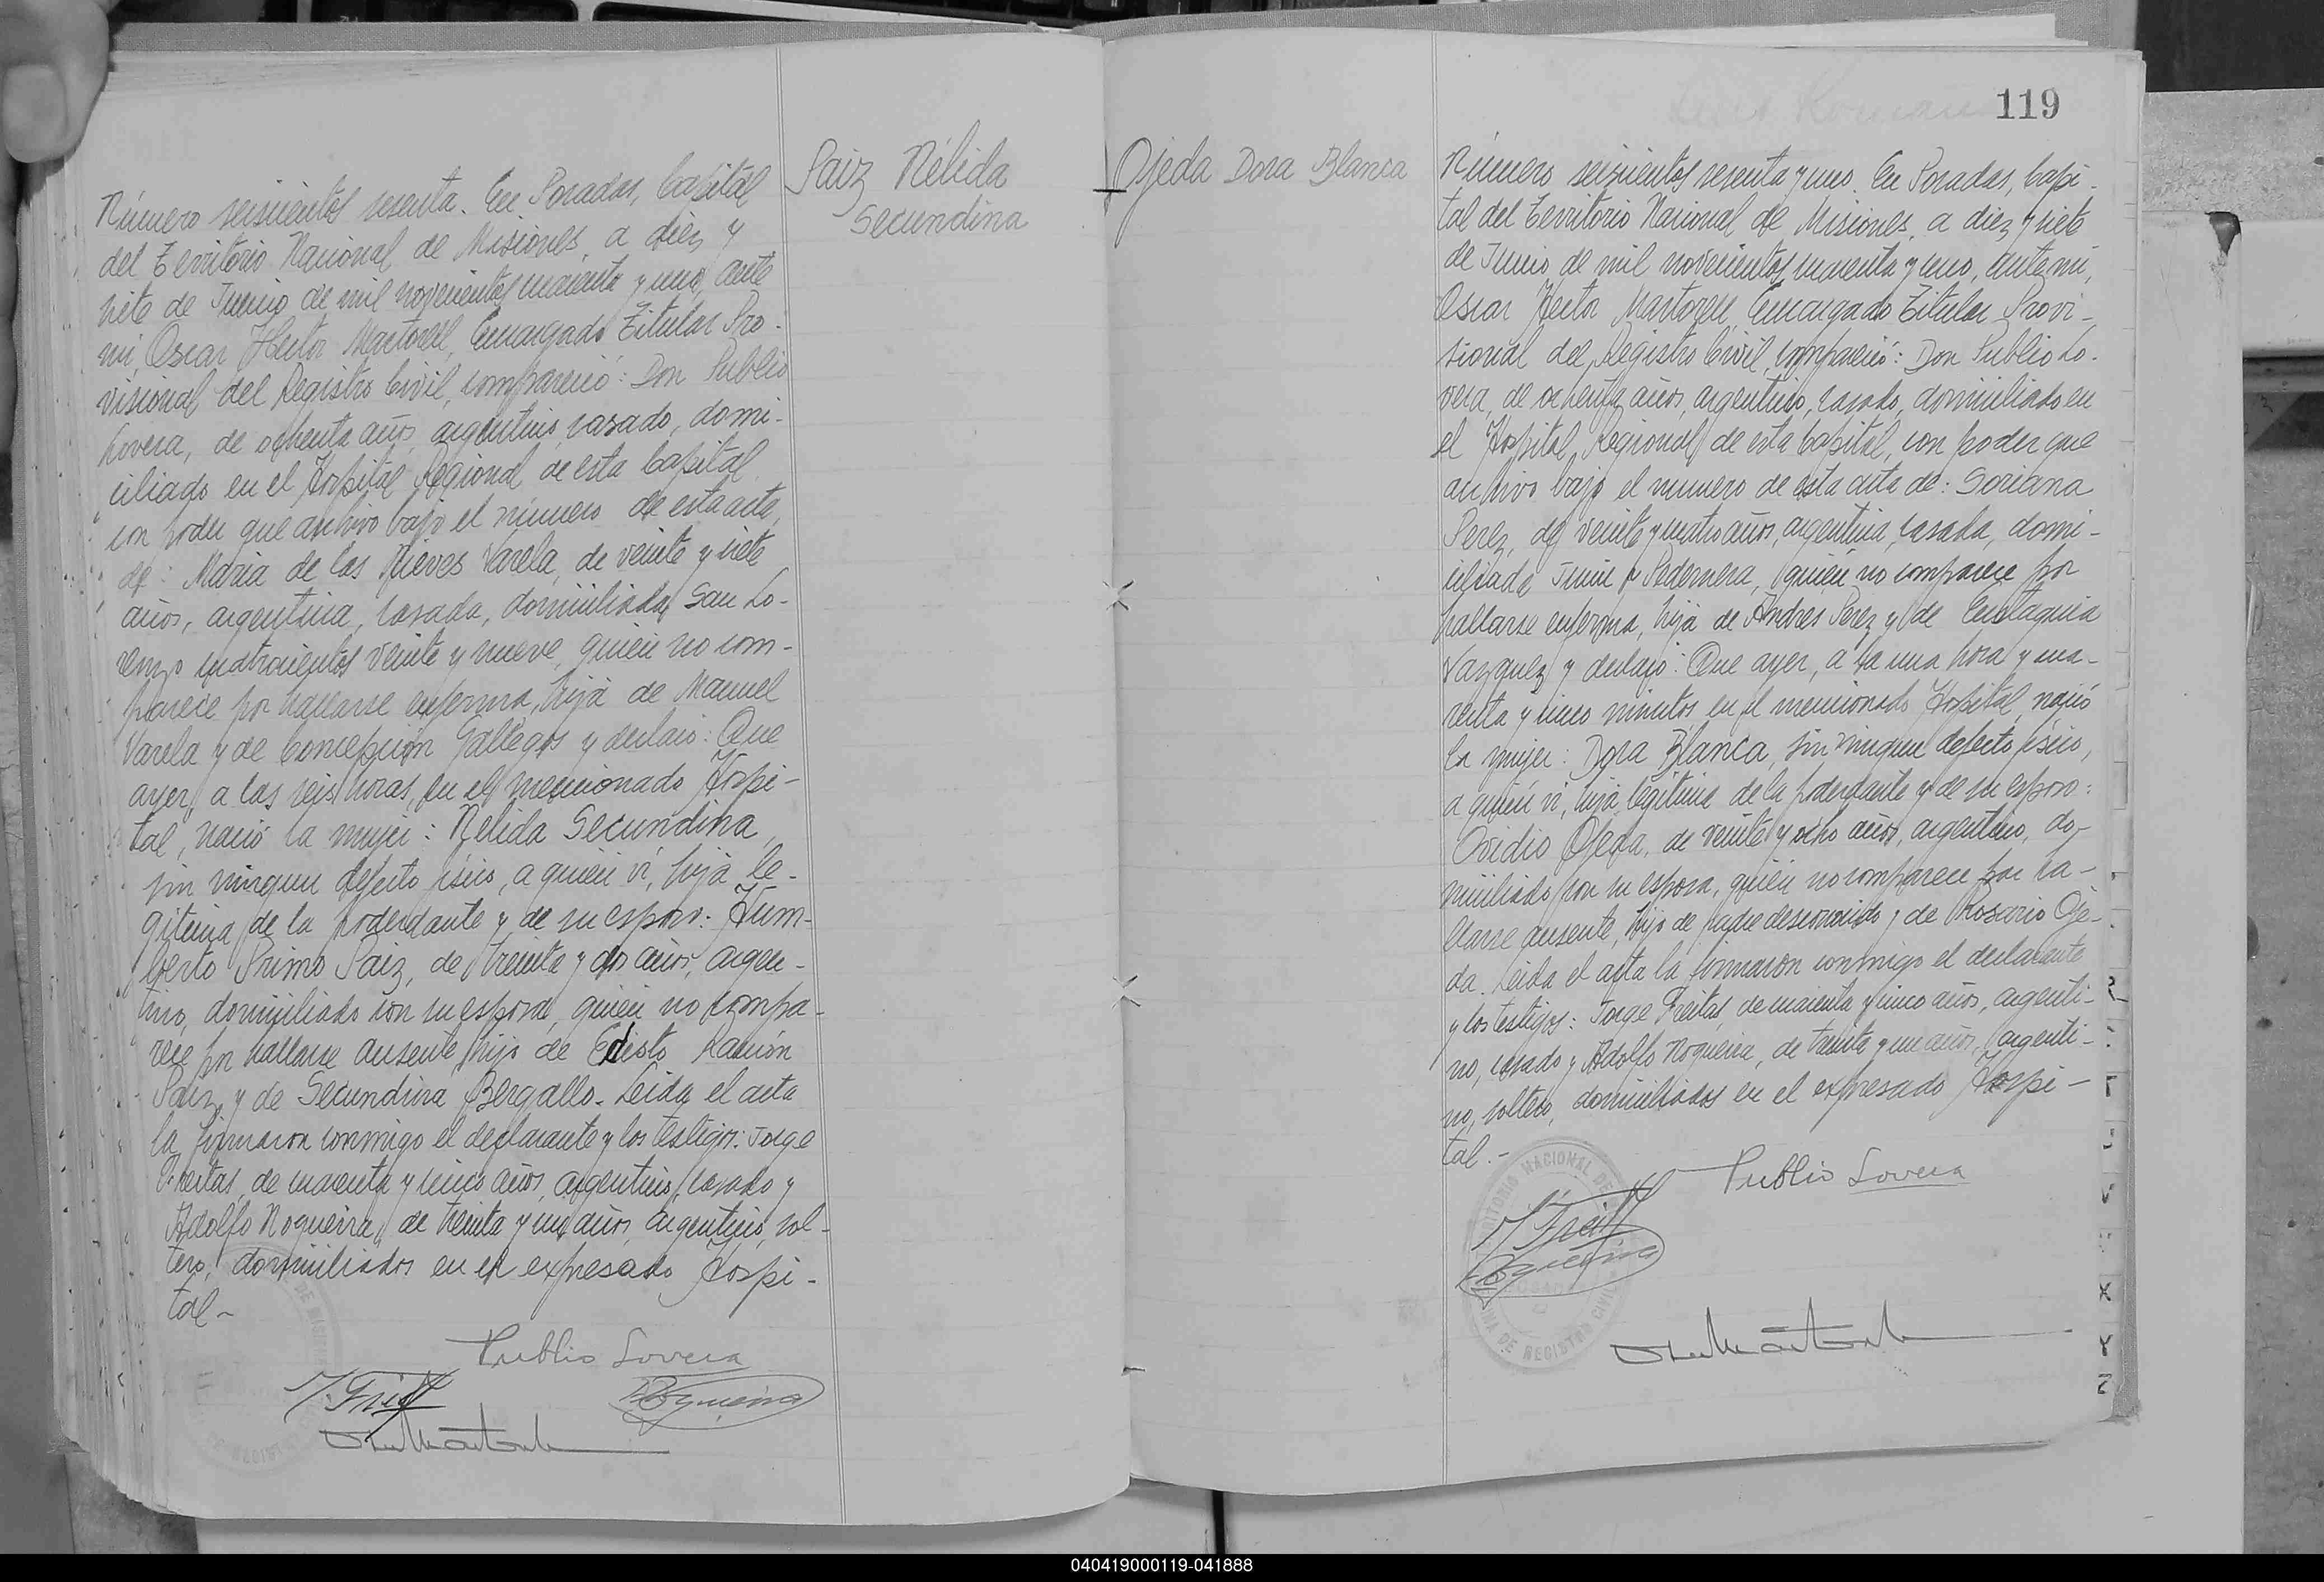 Saiz Nélida
Secundina
Número seiscientos sesenta. En Posadas, Capital
del Territorio Nacional de Misiones, a diez y
siete de Junio de mil novecientos cuarenta y uno, ante
mi, Oscar Hector Martorell, Encargado Titular Pro-
visional del Registro Civil, compareció: Don Publio
Lovera, de ochenta años, argentino, casado, domi-
ciliado en el Hospital Regional de esta Capital,
con poder que archivo bajo el número de esta acta,
de: Maria de las Nieves Varela, de veinte y siete
años, argentina, casada, domiciliada San Lo-
renzo cuatrocientos veinte y nueve, quien no com-
parece por hallarse enferma, hija de Manuel
Varela y de Concepción Gallegos y declaró: Que
ayer, a las seis horas, en el mencionado Hospi-
tal, nació la mujer: Nelida Secundina,
sin ningun defecto físico, a quien vi, hija le-
gitima de la poderdante y de su esposo: Hum-
berto Primo Saiz, de treinta y dos años, argen-
tino, domiciliado con su esposa, quien no compa-
rece por hallarse ausente, hijo de Edisto Ramón
Saiz y de Secundina Bergallo. Leida el acta
la firmaron conmigo el declarante y los testigos: Jorge
Freitas, de cuarenta y cinco años, argentino, casado y
Adolfo Noqueira, de treinta y un años, argentino, sol-
tero, domiciliados en el expresado Hospi-
tal~
Publio Lovera
J. Freit
Noqueira
Ojeda Dora Blanca
119
Número seiscientos sesenta y uno. En Posadas, Capi-
tal del Territorio Nacional de Misiones, a diez y siete
de Junio de mil novecientos cuarenta y uno, ante mi,
Oscar Hector Martorell, Encargado Titular Provi-
sional del Registro Civil, compareció: Don Publio Lo-
vera, de ochenta años, argentino, casado, domiciliado en
el Hospital Regional de esta Capital, con poder que
archivo bajo el numero de esta acta de: Soriana
Perez, de veinte y cuatro años, argentina, casada, domi-
ciliada Junin y Pedernera, quien no comparece por
hallarse enferma, hija de Andres Perez y de Eustaquia
Vazquez y declaró: Que ayer, a la una hora y cua-
renta y cinco minutos en el mencionado Hospital, nació
la mujer: Dora Blanca, sin ningun defecto físico,
a quien vi, hija legitima de la poderdante y de su esposo:
Ovidio Ojeda, de veinte y ocho años, argentino, do-
miciliado con su esposa, quien no comparece por ha-
llarse ausente, hijo de padre desconocido y de Rosario Oje-
da. Leida el acta la firmaron conmigo el declarante
y los testigos: Jorge Freitas, de cuarenta y cinco años, argenti-
no, casado y Adolfo Noqueira, de treinta y un años, argenti-
no, soltero, domiciliados en el expresado Hospi-
tal.-
Publio Lovera
J. Freit
Noqueira
040419000119-041888